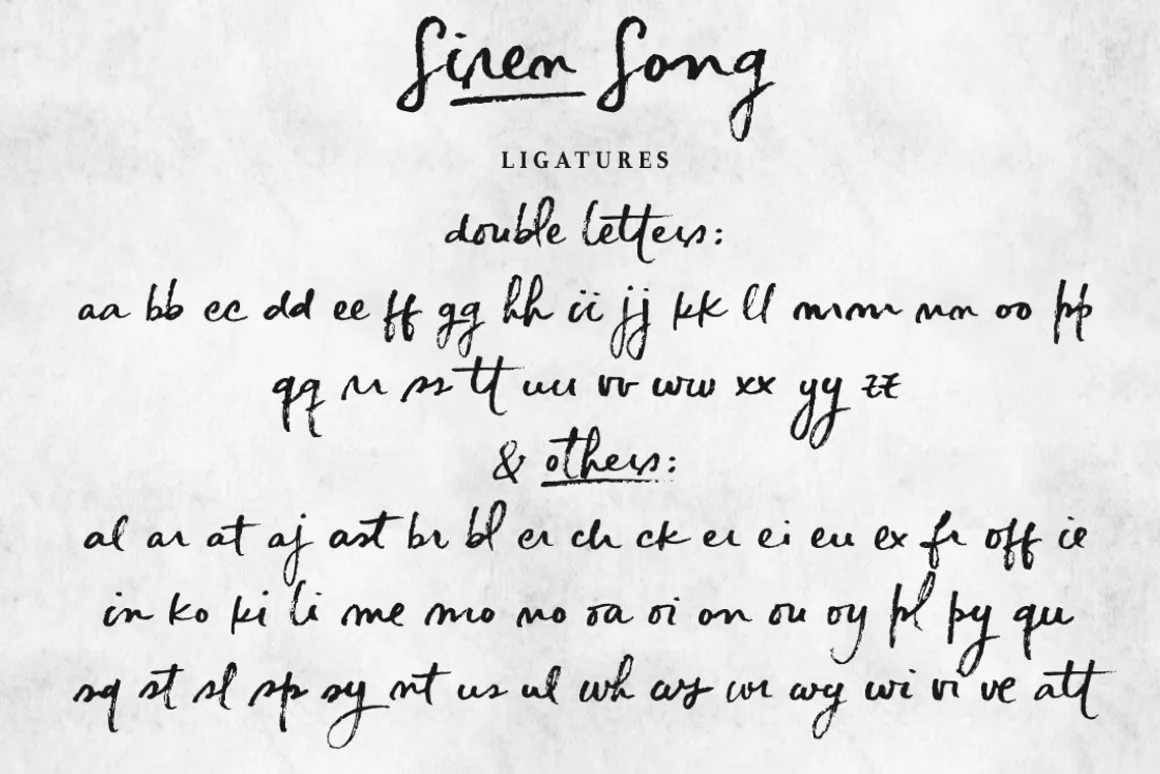 Siren Song
LIGATURES
double letters:
aa bb cc dd ee ff gg hh ii jj kk ll mm nn oo pp
qq rr ss tt uu vv ww xx yy zz
& others:
al ar at aj ast br bl cr ch ck er ei eu ex fr off ie
in ko ki li me mo no oa oi on ou oy pl py qu
sq st sl sp sy nt us ul wh wr wy wi vi ve att